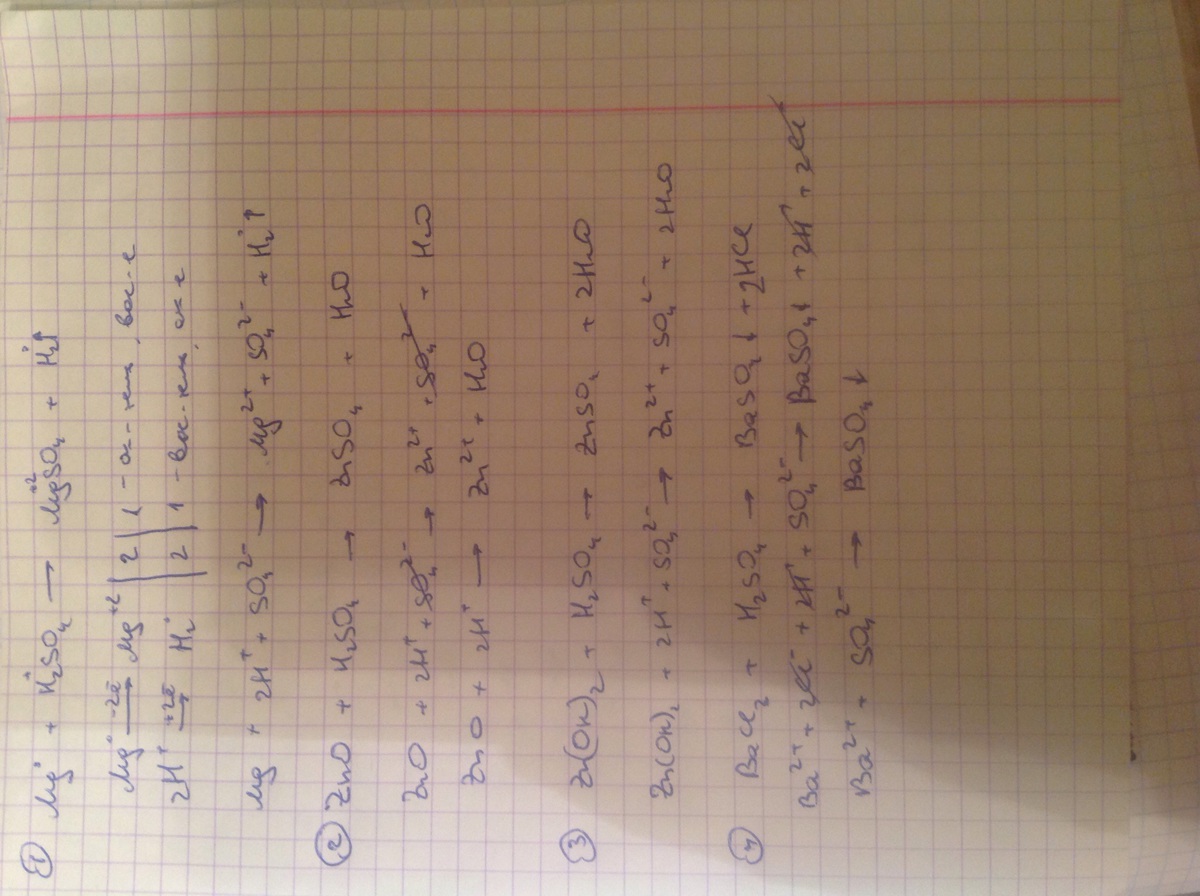 ① Mg⁰ + H₂⁺SO₄ → Mg⁺²SO₄ + H₂⁰↑
Mg⁰ -2ē→ Mg⁺² | 2 | 1 - ок-ние, вос-ль
2H⁺ +2ē→ H₂⁰ | 2 | 1 - вос-ние, ок-ль
Mg + 2H⁺ + SO₄²⁻ → Mg²⁺ + SO₄²⁻ + H₂⁰↑
② ZnO + H₂SO₄ → ZnSO₄ + H₂O
ZnO + 2H⁺ + SO₄²⁻ → Zn²⁺ + SO₄²⁻ + H₂O
ZnO + 2H⁺ → Zn²⁺ + H₂O
③ Zn(OH)₂ + H₂SO₄ → ZnSO₄ + 2H₂O
Zn(OH)₂ + 2H⁺ + SO₄²⁻ → Zn²⁺ + SO₄²⁻ + 2H₂O
④ BaCl₂ + H₂SO₄ → BaSO₄↓ + 2HCl
Ba²⁺ + 2Cl⁻ + 2H⁺ + SO₄²⁻ → BaSO₄↓ + 2H⁺ + 2Cl⁻
Ba²⁺ + SO₄²⁻ → BaSO₄↓